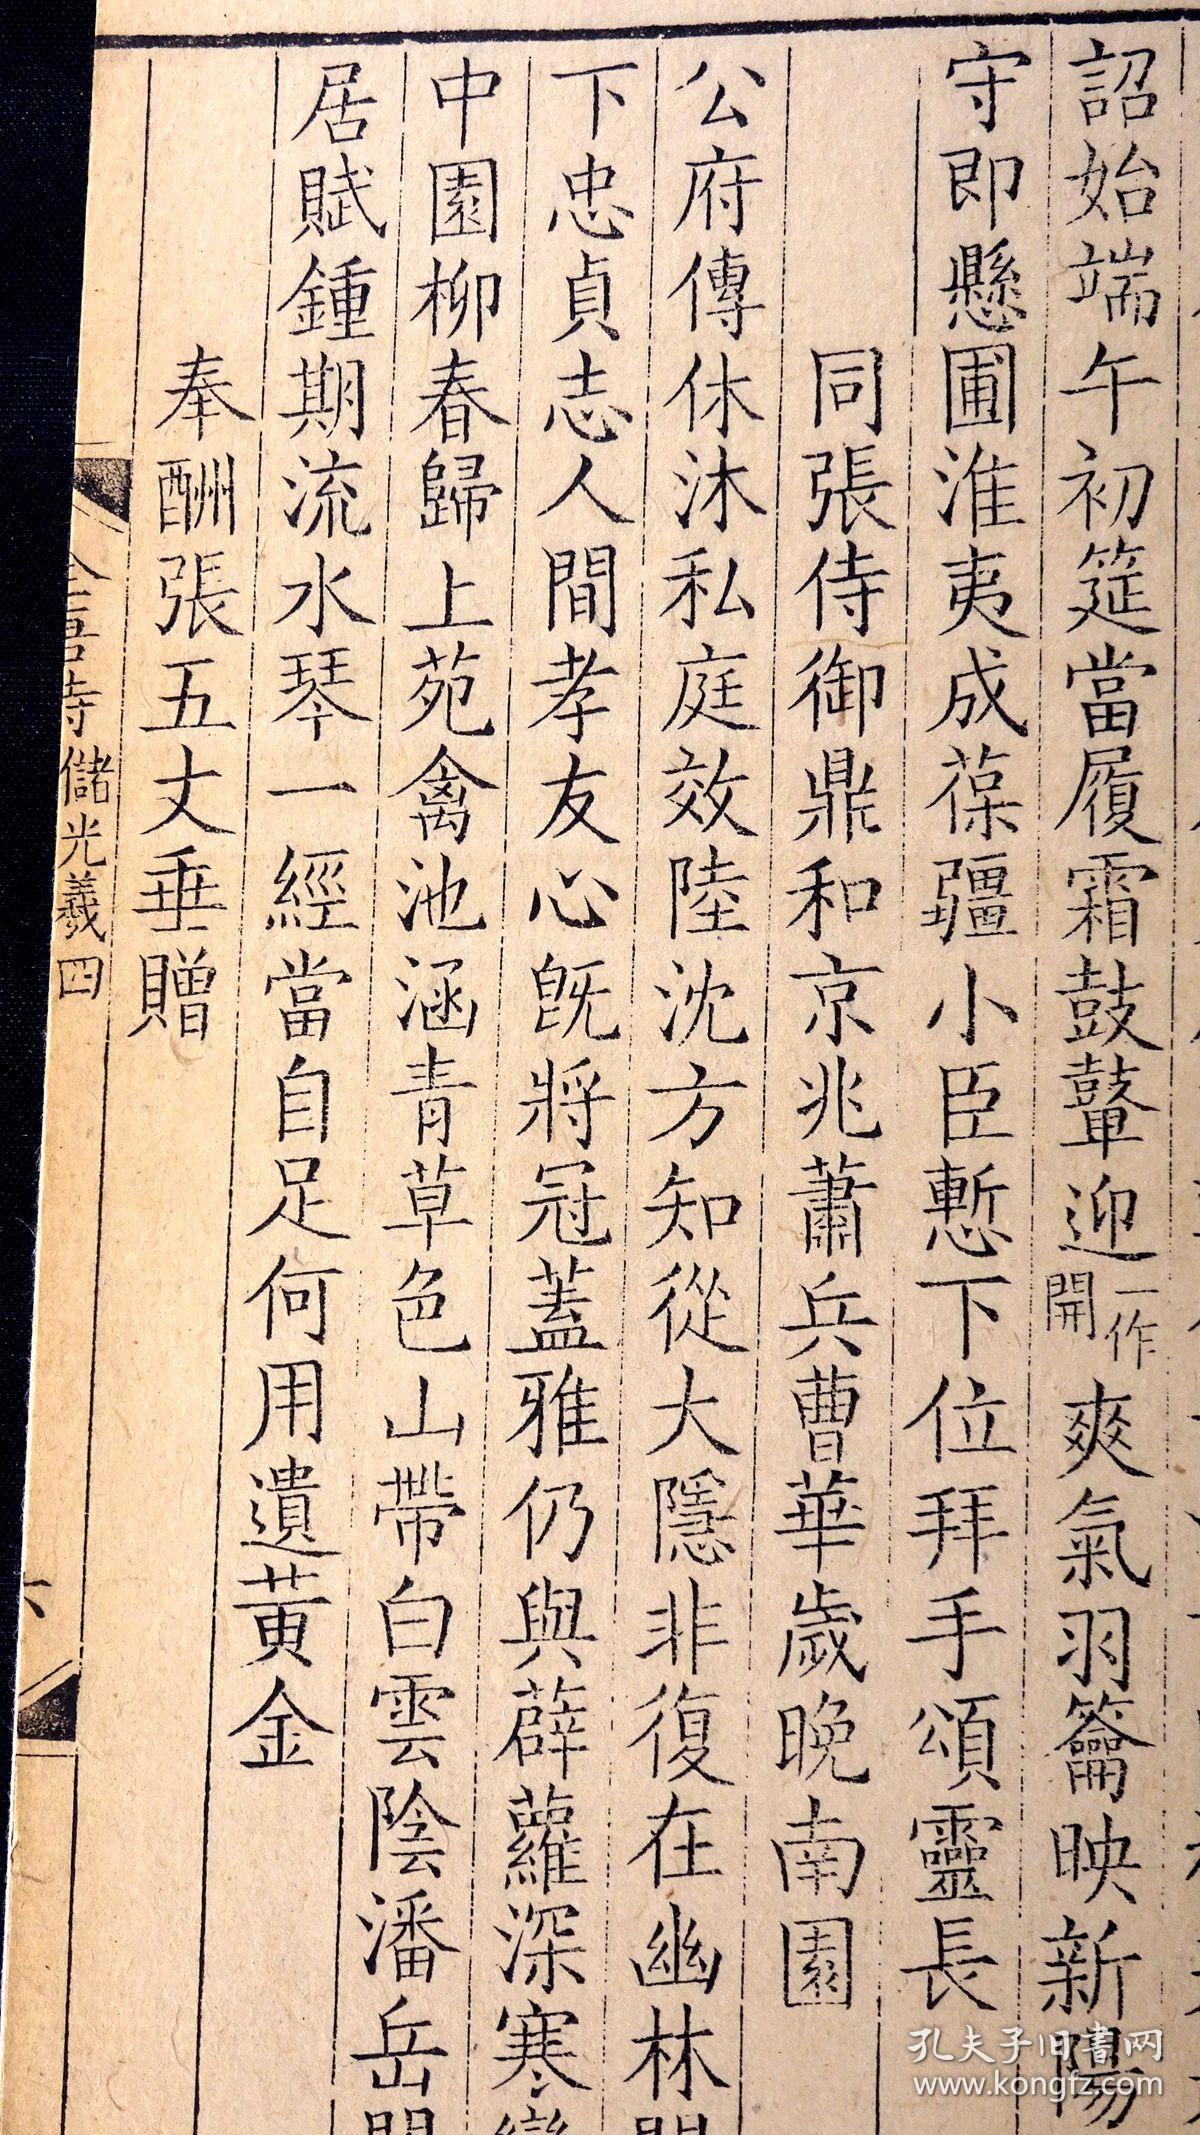 詔始端午初筵當履霜鼓鼙迎一作開爽氣羽籥映新陽
守即懸圃淮夷成葆疆小臣慙下位拜手頌靈長
同張侍御鼎和京兆蕭兵曹華歲晚南園
公府傳休沐私庭效陸沈方知從大隱非復在幽林
下忠貞志人間孝友心旣將冠蓋雅仍與薜蘿深寒
中園柳春歸上苑禽池涵青草色山帶白雲陰潘岳
居賦鍾期流水琴一經當自足何用遺黃金
奉酬張五丈垂贈
儲光羲四
六
孔夫子旧書网
www.kongfz.com